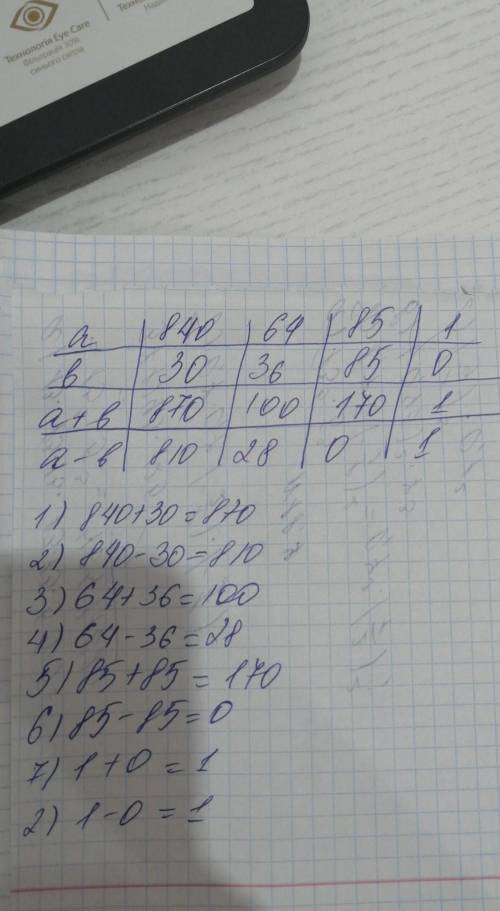 Технологія Eye Care
Фільтрація 30%
синього світла
a 840 64 85 1
в 30 36 85 0
a+в 870 100 170 1
a-в 810 28 0 1
1) 840+30=870
2) 840-30=810
3) 64+36=100
4) 64-36=28
5) 85+85=170
6) 85-85=0
7) 1+0=1
2) 1-0=1